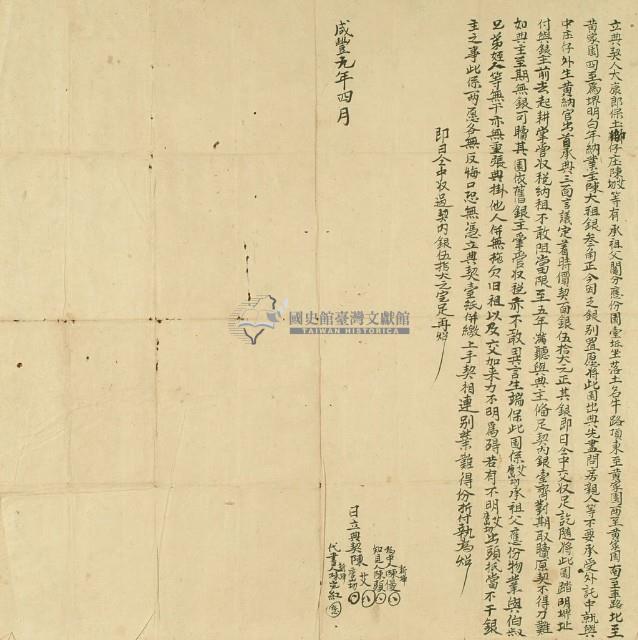 立典契人大康郎保土獅仔庄陳艾等有承祖父鬮分應份園壹坵坐落土名牛路頂東至黃家園西至黃家園南至車路北至
黃家園四至為堺明白年納業主陳大租銀叁角正今因乏銀別置愿將此園出典先盡問房親人等不要承受外託中就與
中庄仔外生黃納官出首承典三面言議定着時價契面銀伍拾大元正其銀即日仝中交收足訖隨將此園踏明堺址
付與銀主前去起耕掌管收稅納租不敢阻當限至五年滿聽與典主備足契內銀壹齊對期取贖原契不得刁難
如典主至期無銀可贖其園依舊銀主掌管收稅亦不敢異言生端保此園係艾承祖父應份物業與伯叔
兄弟姪人等無干亦無重張典掛他人併無拖欠旧租以及交加來力不明為碍若有不明艾出頭抵當不干銀
主之事此係兩愿各無反悔口恐無憑立典契壹紙併繳上手契相連別業難得份折付執為炤
即日仝中收過契內銀伍拾大元完足再炤
咸豐元年四月
為中人陳
知見人陳
日立典契陳艾
代書人陳 紅
國史館臺灣文獻館
TAIWAN HISTORICA